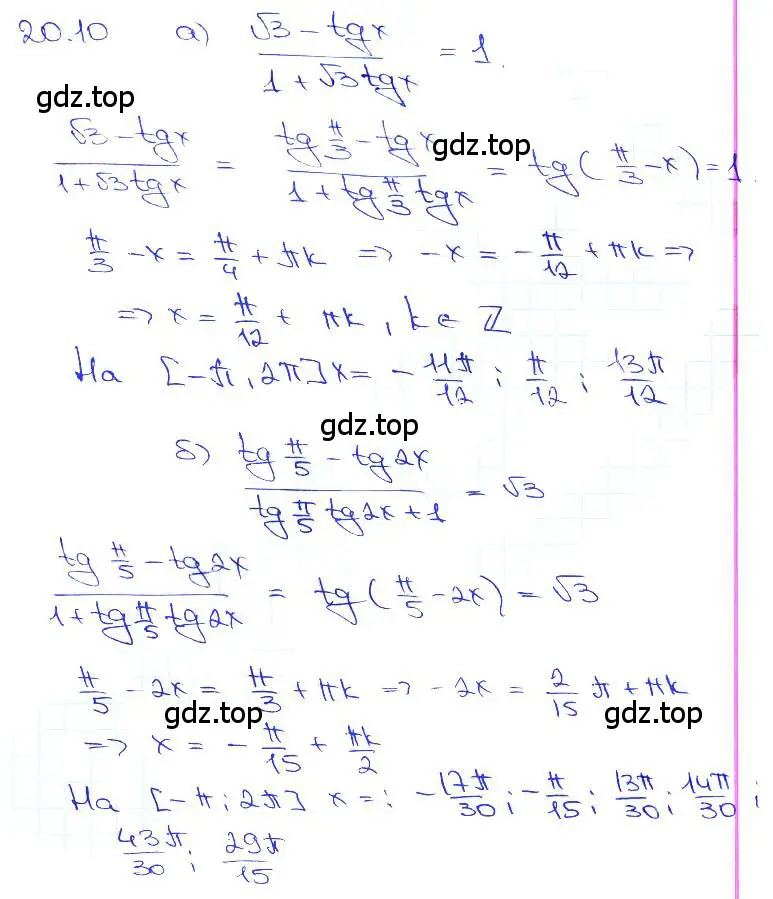 20.10 а) (√3 - tgx)/(1 + √3 tgx) = 1.
gdz.top
(√3 - tgx)/(1 + √3 tgx) = (tg π/3 - tg x)/(1 + tg π/3 tgx) = tg(π/3 - x) = 1
gdz.top
π/3 - x = π/4 + πk => -x = -π/12 + πk =>
=> x = π/12 + πk, k ∈ ℤ
На [-π, 2π] x = -11π/12; π/12; 13π/12
gdz.top
б) (tg π/5 - tg 2x)/(tg π/5 tg 2x + 1) = √3
(tg π/5 - tg 2x)/(1 + tg π/5 tg 2x) = tg(π/5 - 2x) = √3
π/5 - 2x = π/3 + πk => -2x = 2/15 π + πk
gdz.top
gdz.top
=> x = -π/15 + πk/2
На [-π; 2π] x =: -17π/30; -π/15; 13π/30; 14π/30;
43π/30; 29π/15